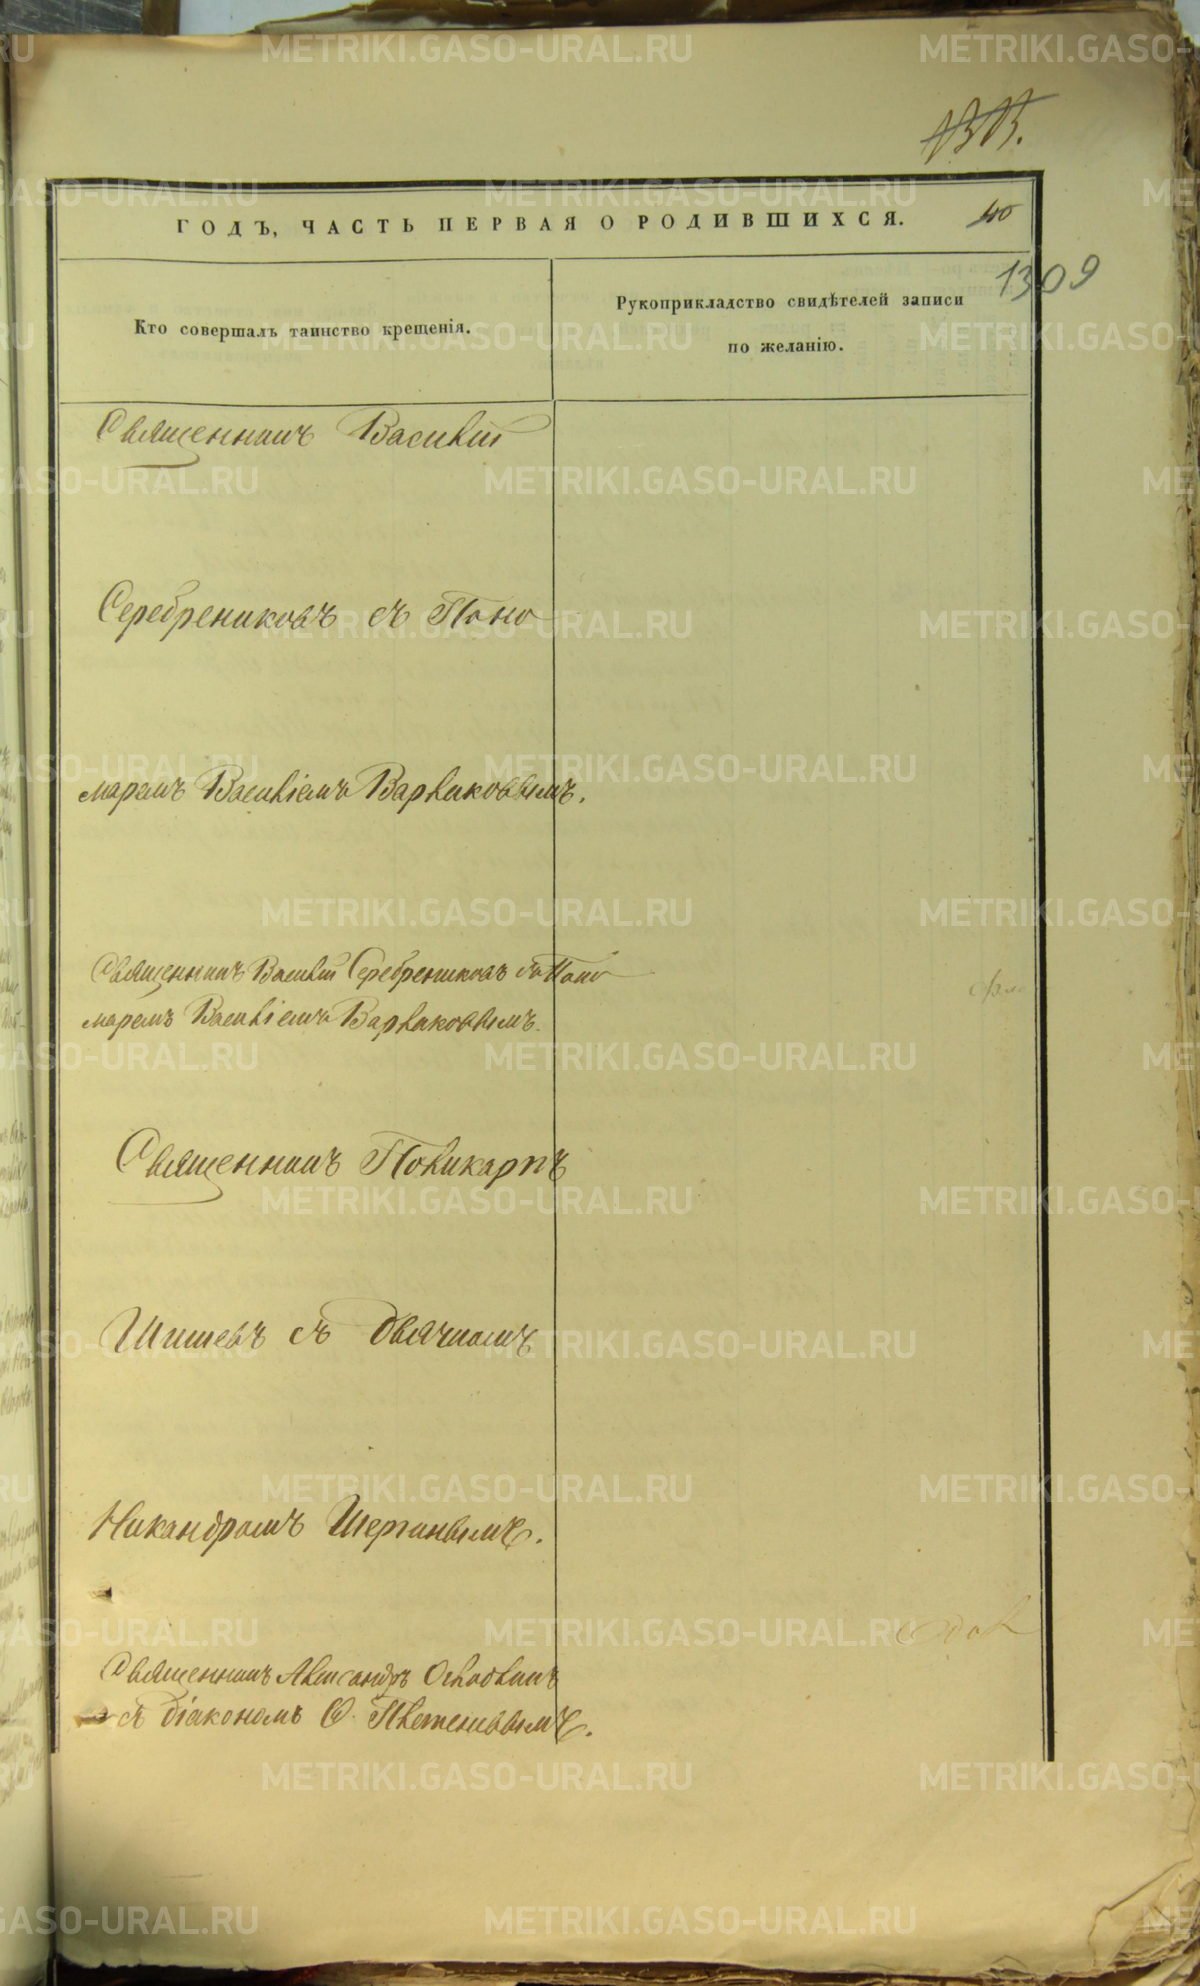 ГОДЪ, ЧАСТЬ ПЕРВАЯ О РОДИВШИХСЯ. 40
1309
Кто совершалъ таинство крещенія.
Рукоприкладство свидѣтелей записи
по желанію.
Священникъ Василій
Серебрениковъ съ Поно
маремъ Василіемъ Варлаковымъ.
Священникъ Василій Серебрениковъ съ Поно
маремъ Василіемъ Варлаковымъ.
Священникъ Поликарпъ
Шишевъ съ Дьячкомъ
Никандромъ Шергинымъ.
Священникъ Александръ
съ діакономъ
METRIKI.GASO-URAL.RU